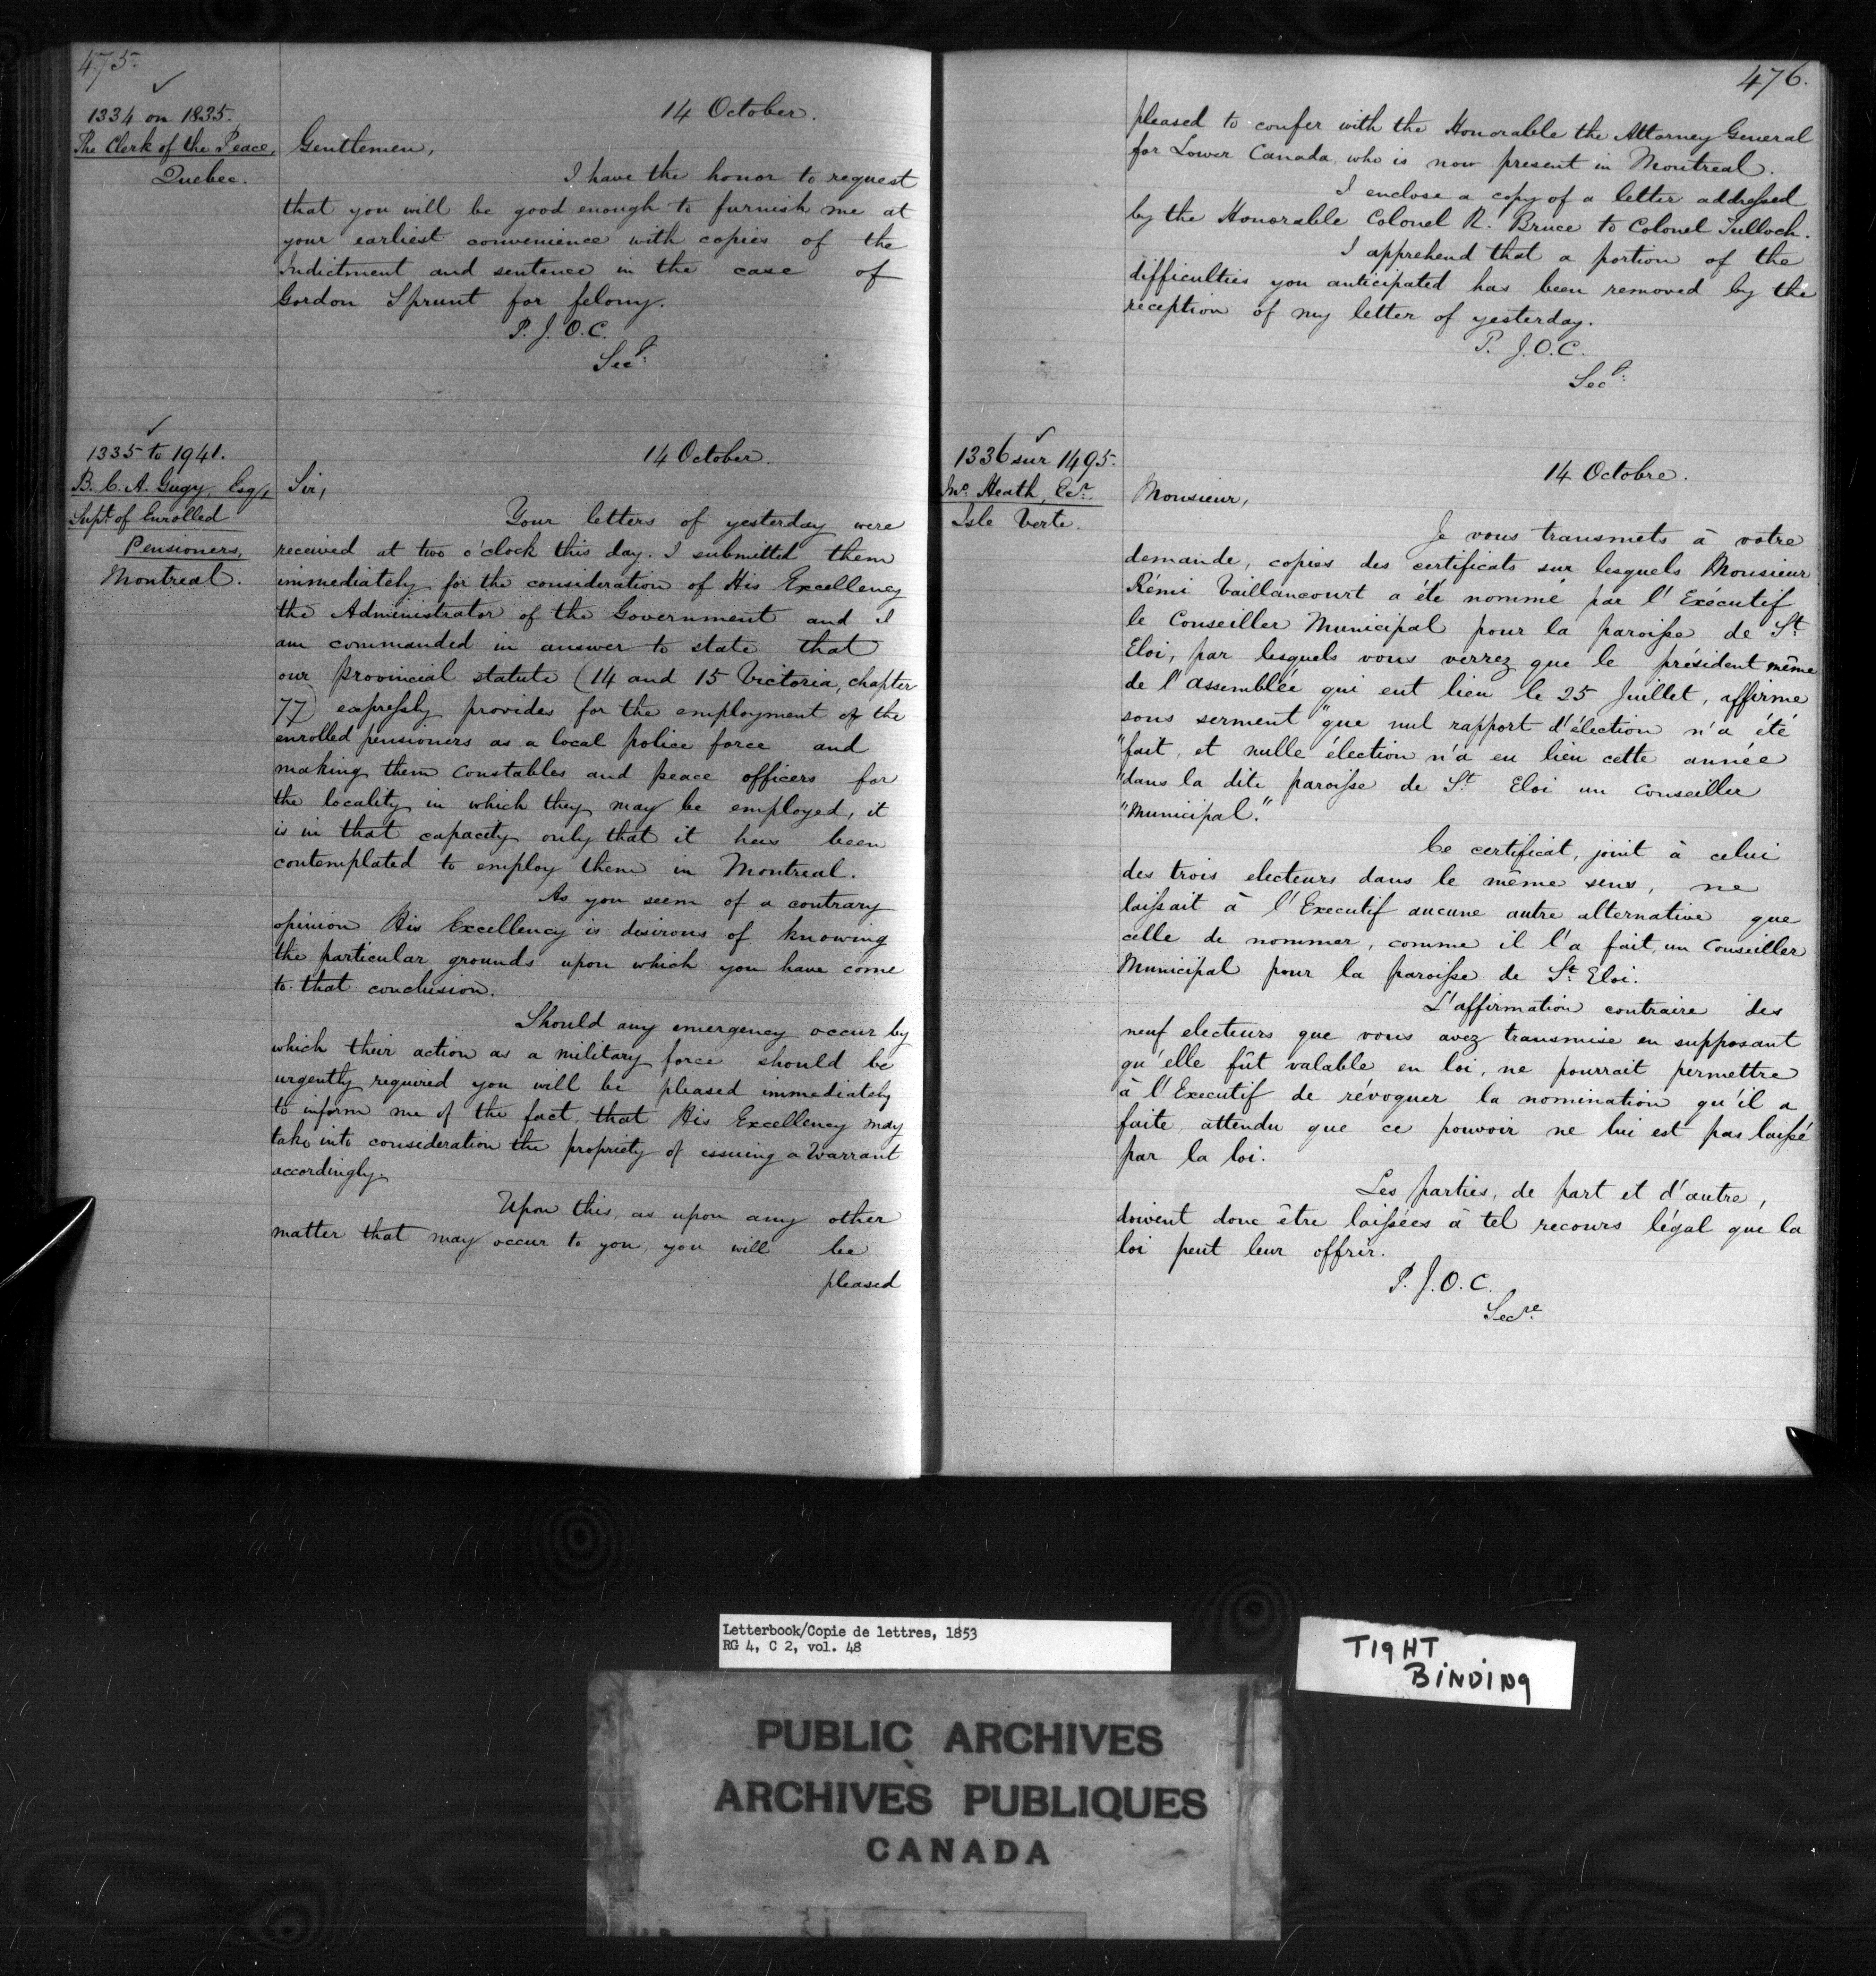 475.
1334 on 1835.
The Clerk of the Peace,
Quebec.
14 October.
Gentlemen,
I have the honor to request
that you will be good enough to furnish me at
your earliest convenience with copies of the
Indictment and sentence in the case of
Gordon Sprunt for felony.
P. J. O. C.
Secy.
1335 to 1941.
B. C. A. Gugy, Esq.,
Supt. of Enrolled
Pensioners,
Montreal.
14 October.
Sir,
Your letters of yesterday were
received at two o'clock this day. I submitted them
immediately for the consideration of His Excellency
the Administrator of the Government and I
am commanded in answer to state that
our provincial statute (14 and 15 Victoria, chapter
77) expressly provides for the employment of the
enrolled pensioners as a local police force and
making them constables and peace officers for
the locality in which they may be employed, it
is in that capacity only that it has been
contemplated to employ them in Montreal.
As you seem of a contrary
opinion His Excellency is desirous of knowing
the particular grounds upon which you have come
to that conclusion.
Should any emergency occur by
which their action as a military force should be
urgently required you will be pleased immediately
to inform me of the fact, that His Excellency may
take into consideration the propriety of issuing a Warrant
accordingly.
Upon this, as upon any other
matter that may occur to you, you will be
pleased
476.
pleased to confer with the Honorable the Attorney General
for Lower Canada, who is now present in Montreal.
I enclose a copy of a letter addressed
by the Honorable Colonel R. Bruce to Colonel Tulloch.
I apprehend that a portion of the
difficulties you anticipated has been removed by the
reception of my letter of yesterday.
P. J. O. C.
Secy.
1336 sur 1495.
Jno. Heath, Ecr.
Isle Verte.
14 Octobre.
Monsieur,
Je vous transmets à votre
demande, copies des certificats sur lesquels Monsieur
Rémi Vaillancourt a été nommé par l'Exécutif
le Conseiller Municipal pour la paroisse de St
Eloi, par lesquels vous verrez que le président même
de l'assemblée qui eut lieu le 25 Juillet, affirme
sous serment "que nul rapport d'élection n'a été
"fait, et nulle élection n'a eu lieu cette année
"dans la dite paroisse de St. Eloi un conseiller
"Municipal."
Ce certificat, joint à celui
des trois electeurs dans le même sens, ne
laissait à l'Executif aucune autre alternative que
celle de nommer, comme il l'a fait, un Conseiller
Municipal pour la paroisse de St. Eloi.
L'affirmation contraire des
neuf electeurs que vous avez transmise en supposant
qu'elle fût valable en loi, ne pourrait permettre
à l'Executif de révoquer la nomination qu'il a
faite, attendu que ce pouvoir ne lui est pas laissé
par la loi.
Les parties, de part et d'autre,
doivent donc être laissées à tel recours légal que la
loi peut leur offrir.
P. J. O. C.
Secre.
Letterbook/Copie de lettres, 1853
RG 4, C 2, vol. 48
TIGHT
BINDING
PUBLIC ARCHIVES
ARCHIVES PUBLIQUES
CANADA